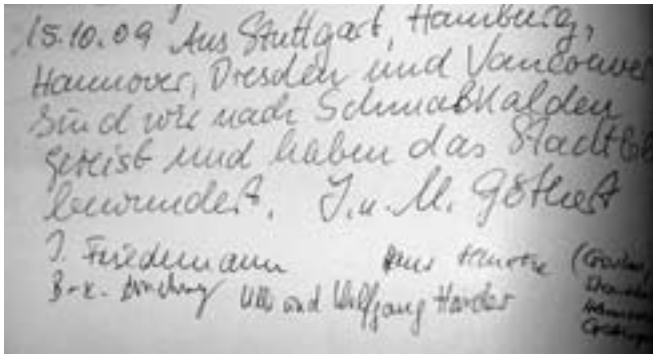 15.10.09 Aus Stuttgart, Hamburg,
Hannover, Dresden und Vancouver
sind wir nach Schmalkalden
gereist und haben das
bewundert. J. u. M. Göthert
J. Friedemann
Ulli und Wolfgang Harder